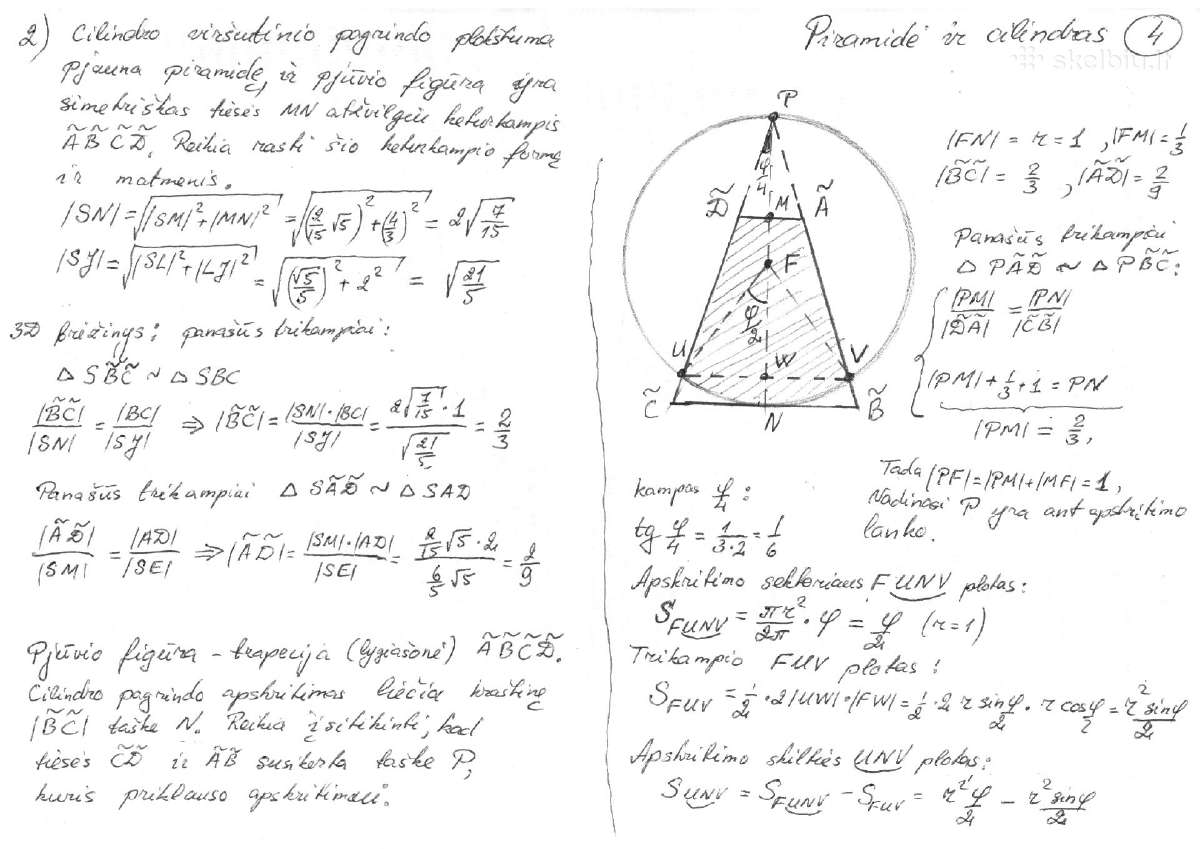 2) Cilindro viršutinio pagrindo plokštuma
pjauna piramidę, ir pjūvio figūra yra
simetriškas tiesės MN atžvilgiu keturkampis
ÃB̃C̃D̃. Reikia rasti šio keturkampio formą
ir matmenis.
|SN| = √(|SM|² + |MN|²) = √((2/15 √5)² + (4/3)²) = 2√(7/15)
|SJ| = √(|SL|² + |LJ|²) = √((√5/5)² + 2²) = √(21/5)
3D brėžinys; panašūs trikampiai:
△ SB̃C̃ ~ △ SBC
|B̃C̃|/|SN| = |BC|/|SJ| ⇒ |B̃C̃| = |SN|·|BC|/|SJ| = 2√(7/15)·1/√(21/5) = 2/3
Panašūs trikampiai △ SÃD̃ ~ △ SAD
|ÃD̃|/|SM| = |AD|/|SE| ⇒ |ÃD̃| = |SM|·|AD|/|SE| = 2/15 √5·2/(6/5 √5) = 2/9
Pjūvio figūra – trapecija (lygiašonė) ÃB̃C̃D̃.
Cilindro pagrindo apskritimas liečia kraštinę
|B̃C̃| taške N. Reikia įsitikinti, kad
tiesės C̃D̃ ir ÃB̃ susikerta taške P,
kuris priklauso apskritimui.
Piramidė ir cilindras 4
skelbiu.lt
P
φ/4
D̃ M Ã
F
φ/2
U W V
C̃ N B̃
|FN| = r = 1, |FM| = 1/3
|B̃C̃| = 2/3, |ÃD̃| = 2/9
Panašūs trikampiai
△ PÃD̃ ~ △ PB̃C̃:
|PM|/|D̃Ã| = |PN|/|C̃B̃|
|PM| + 1/3 + 1 = PN
|PM| = 2/3,
Tada |PF| = |PM| + |MF| = 1,
Vadinasi P yra ant apskritimo
lanko.
kampas φ/4:
tg φ/4 = 1/(3·2) = 1/6
Apskritimo sektoriaus FUNV plotas:
S_FUNV = πr²/2π · φ = φ/2 (r=1)
Trikampio FUV plotas:
S_FUV = 1/2 · 2|UW|·|FW| = 1/2 · 2 r sin φ/2 · r cos φ/2 = r² sinφ/2
Apskritimo skilties UNV plotas:
S_UNV = S_FUNV − S_FUV = r²φ/2 − r² sinφ/2